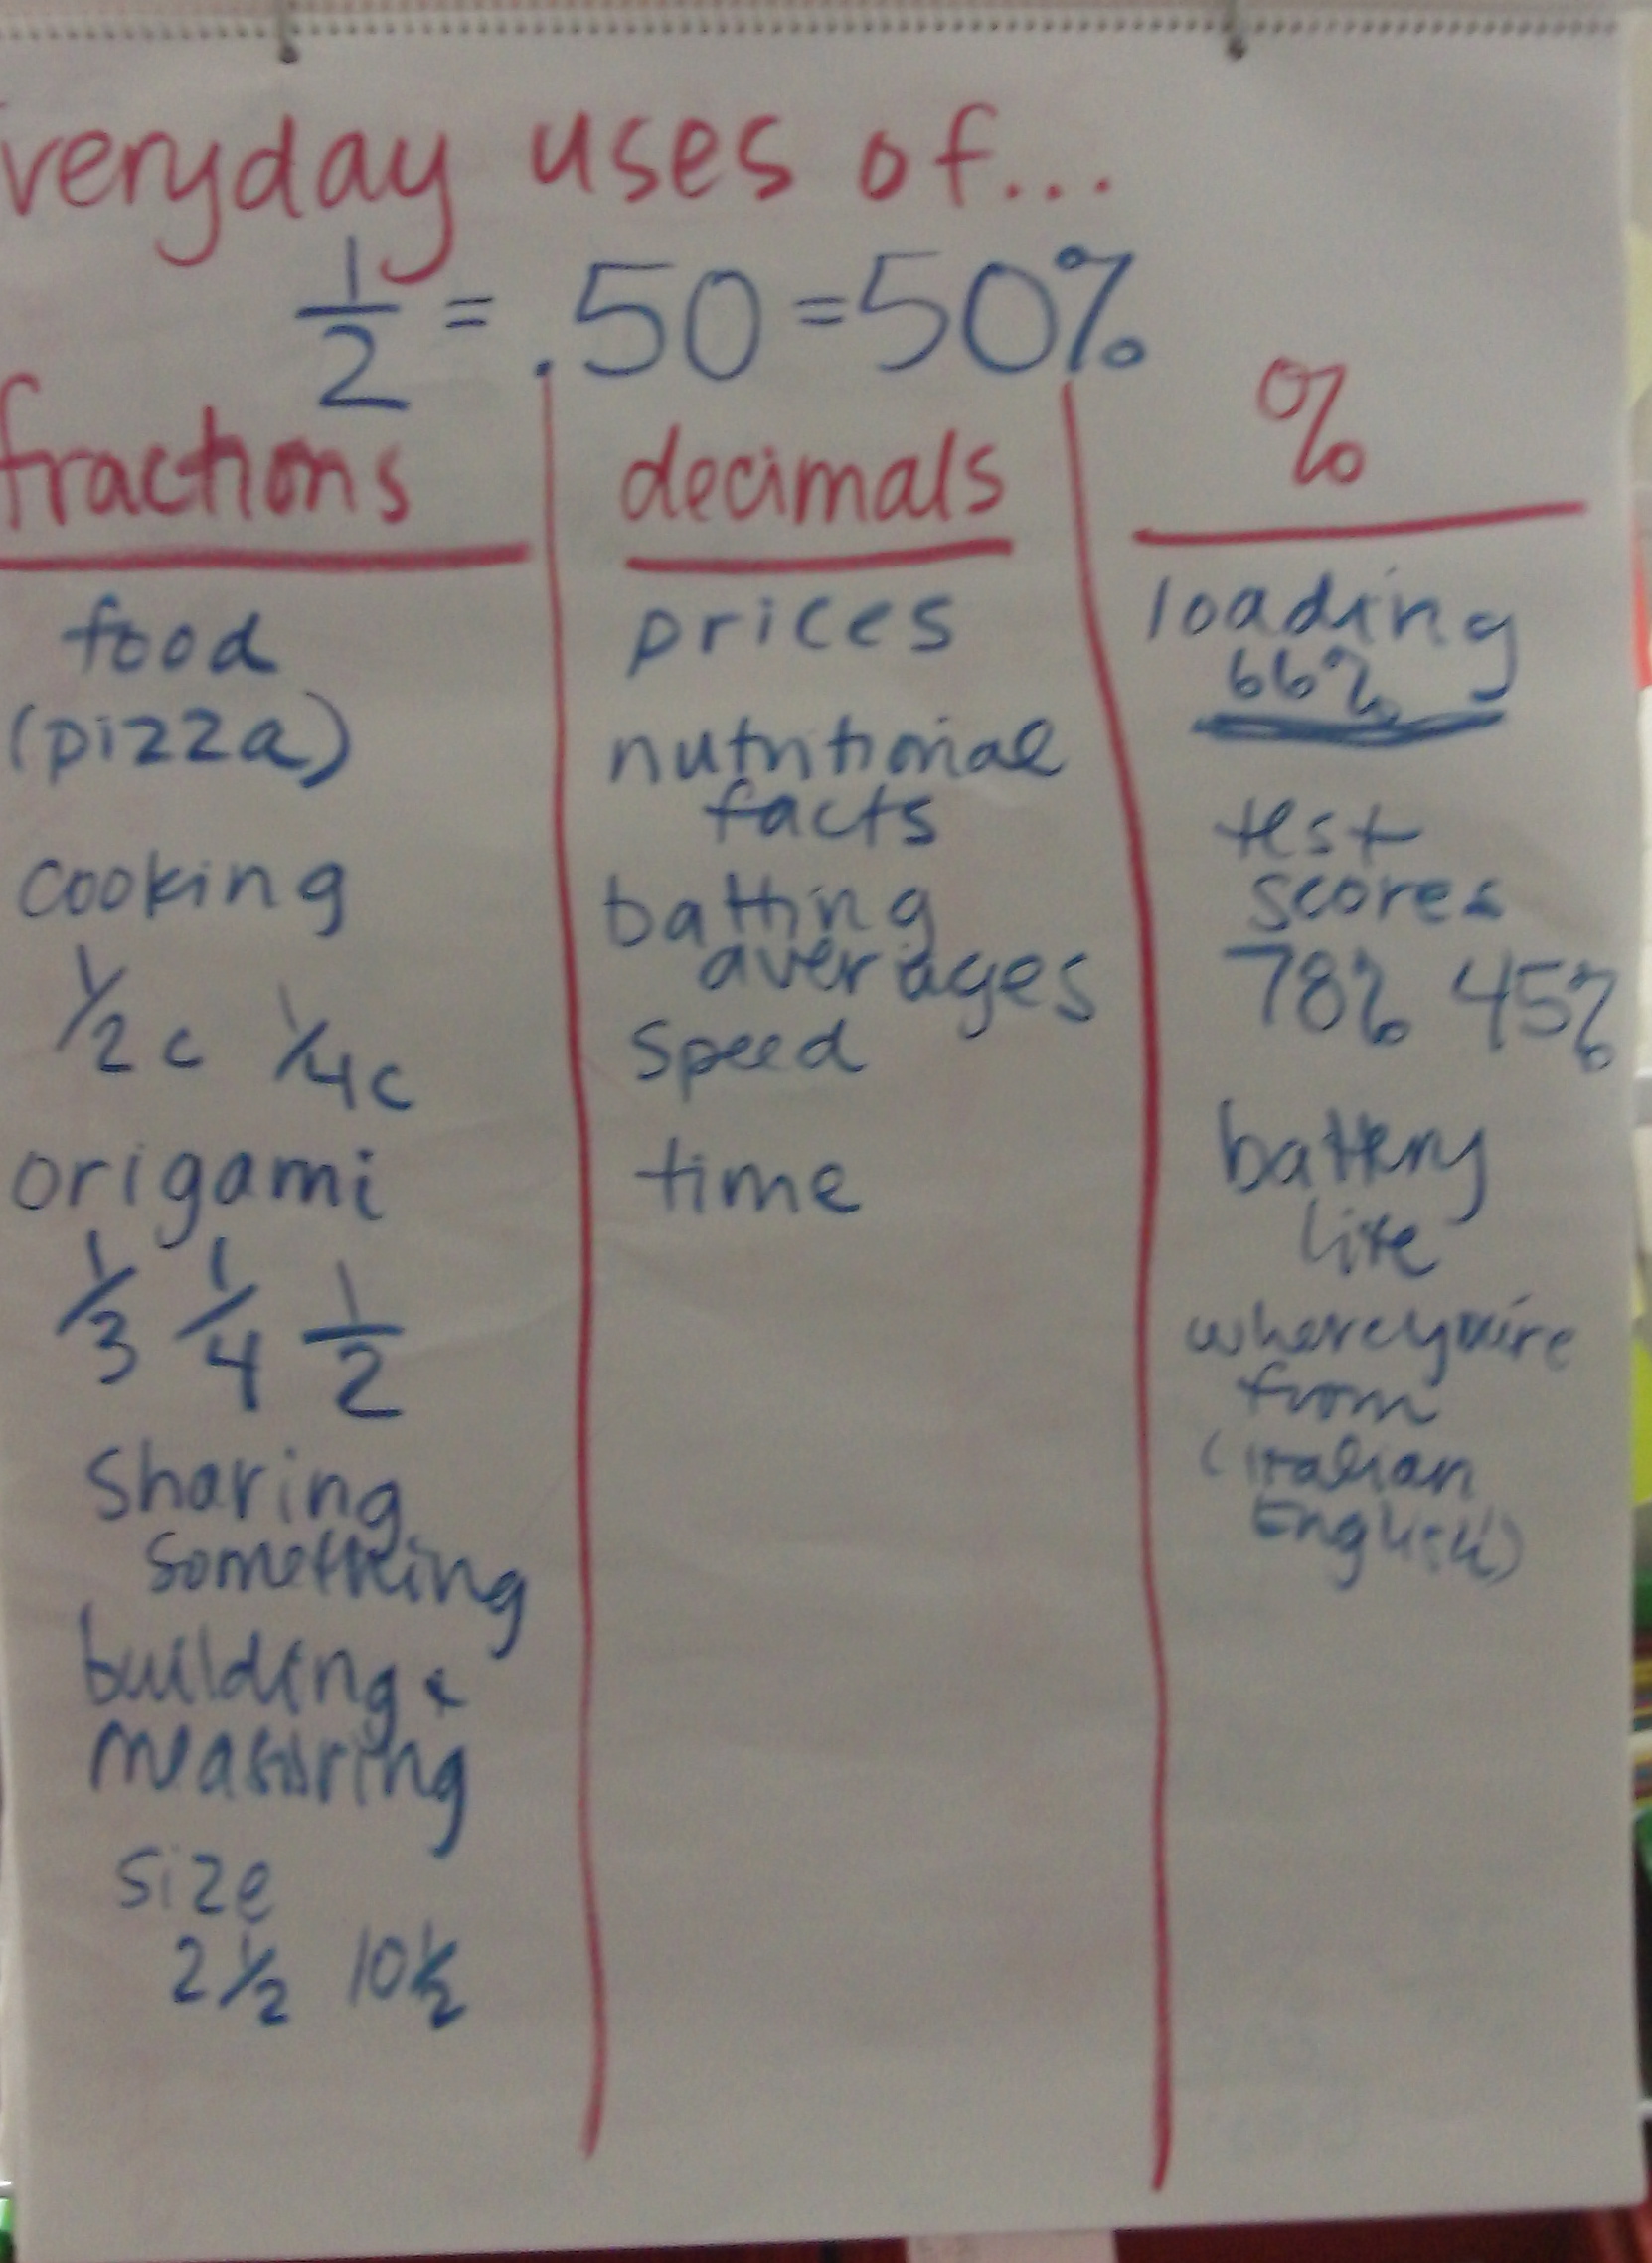 veryday uses of...
1/2 = .50 = 50%
fractions
food
(pizza)
cooking
1/2 c 1/4 c
origami
1/3 1/4 1/2
sharing
something
building &
measuring
size
2 1/2 10 1/2
decimals
prices
nutritional
facts
batting
averages
speed
time
%
loading
66%
test
scores
78% 45%
battery
life
where you're
from
(Italian
English)